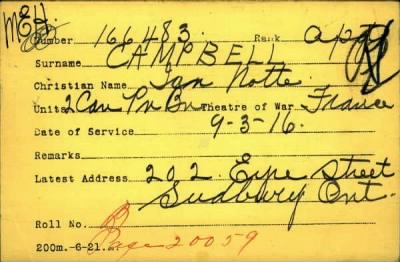 MEH
Number 166483. Rank a/p
Surname CAMPBELL
Christian Name Ian Notte.
Units 2 Can Pn Bn Theatre of War France
Date of Service 9-3-16.
Remarks
Latest Address 202. Eyre Street
Sudbury Ont.
Roll No. B
Page 20059
200m.-6-21.